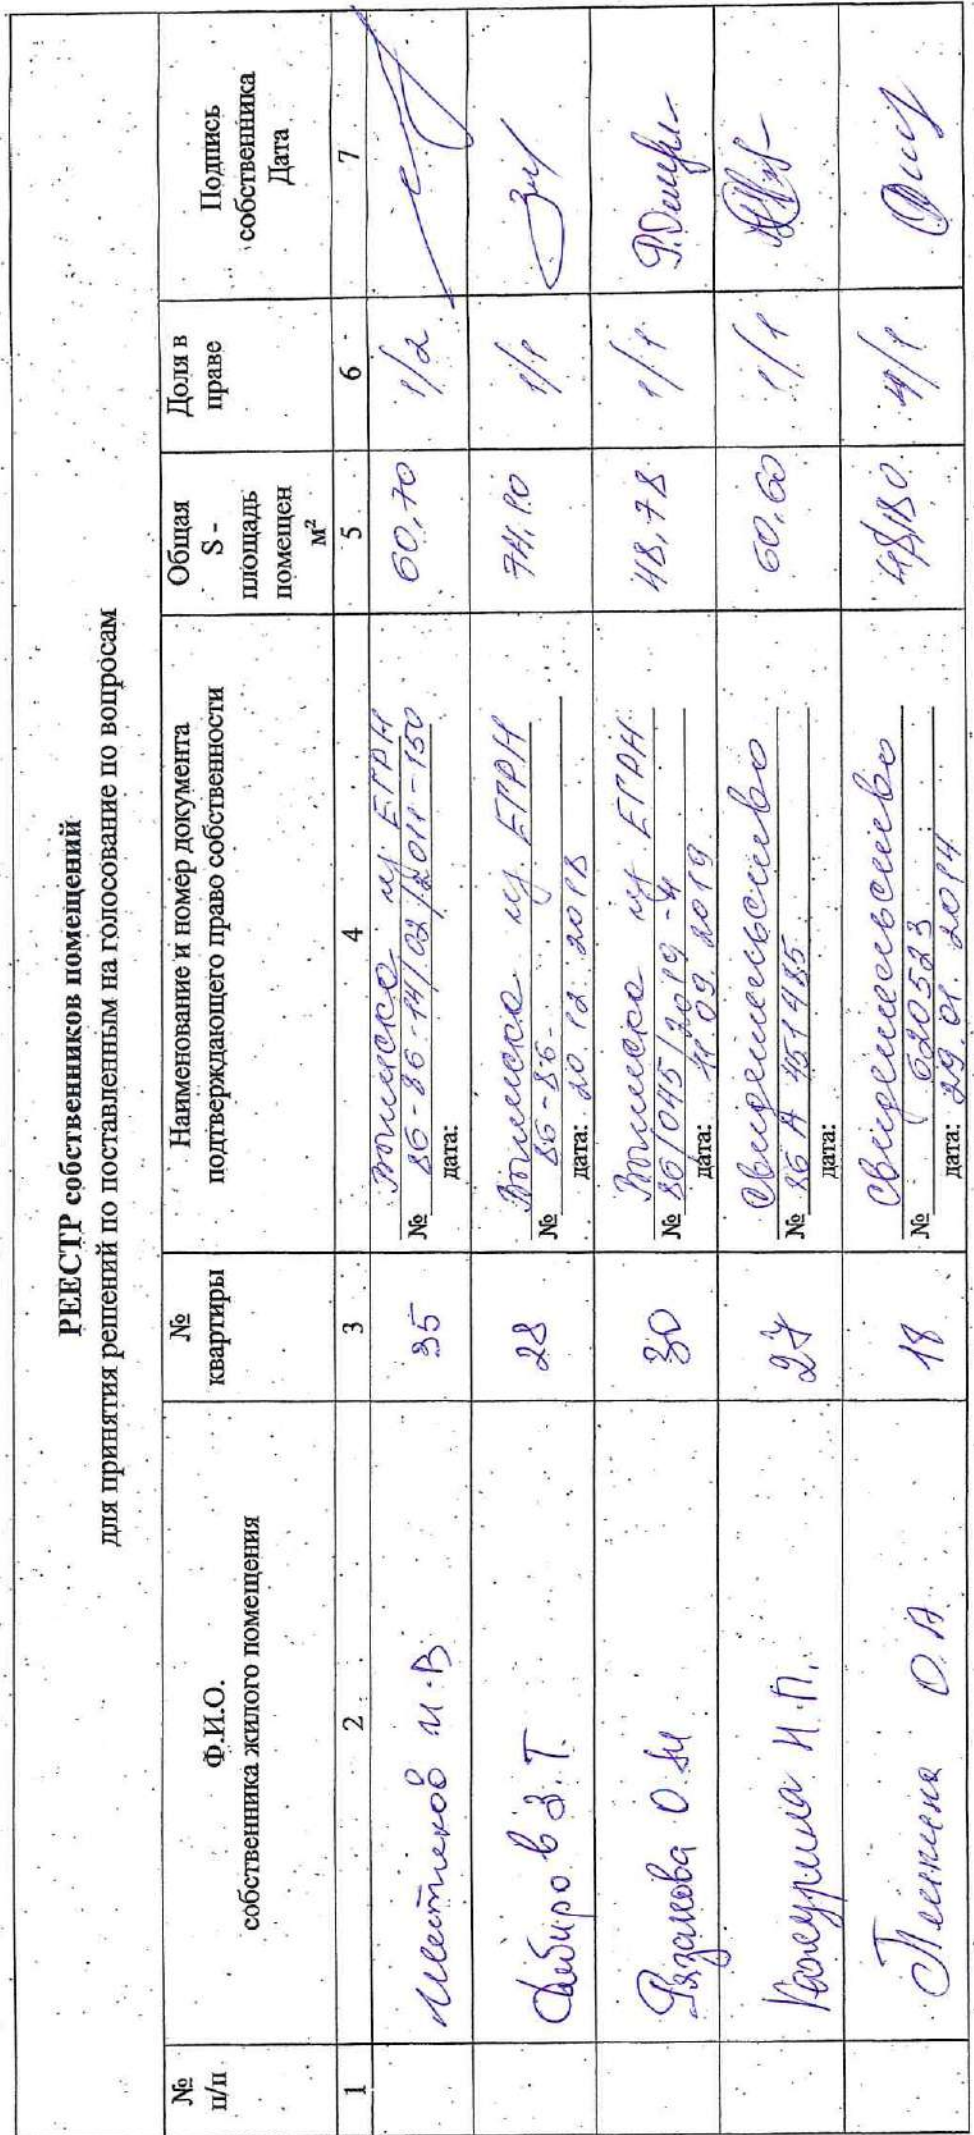 РЕЕСТР собственников помещений
для принятия решений по поставленным на голосование по вопросам
№ п/п
Ф.И.О. собственника жилого помещения
№ квартиры
Наименование и номер документа подтверждающего право собственности
Общая S - площадь помещен м²
Доля в праве
Подпись собственника Дата
1 2 3 4 5 6 7
И.В. 35 Выписка из ЕГРН 60,70 1/2
№ 86-86-14/02/2011-150
дата:
З.Т. 28 Выписка из ЕГРН 74,10 1/1
№ 86-86-
дата: 20.12.2018
Рязанова О.М 30 Выписка из ЕГРН 48,78 1/1
№ 86/045/2019-4
дата: 11.09.2019
Н.П. 27 Свидетельство 60,60 1/1
№ 86 А 451485
дата:
О.А. 18 Свидетельство 1/1
№ 620523
дата: 29.01.2014